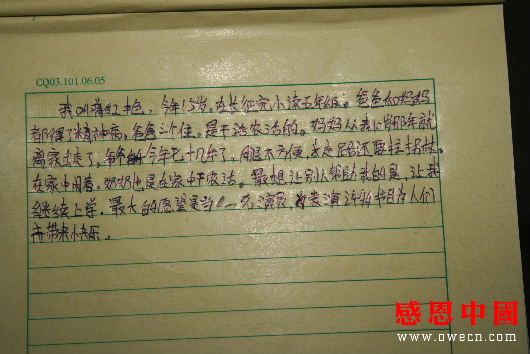 CQ03.101.06.05
我叫蒋红艳，今年15岁，在长征完小读五年级。爸爸和妈妈
都得了精神病，爸爸三个住，是干造农活的。妈妈从我岁那年就
离家出走了，爷爷今年七十几了，但腿不方便，走走路还要拄拐杖。
在家中闲着。奶奶也是在家中干农活。最想让别人帮助我的是，让我
继续上学。最大的愿望是当个一名演员，为表演许多节目为人们
带来快乐。
感恩中國
www.owecn.com